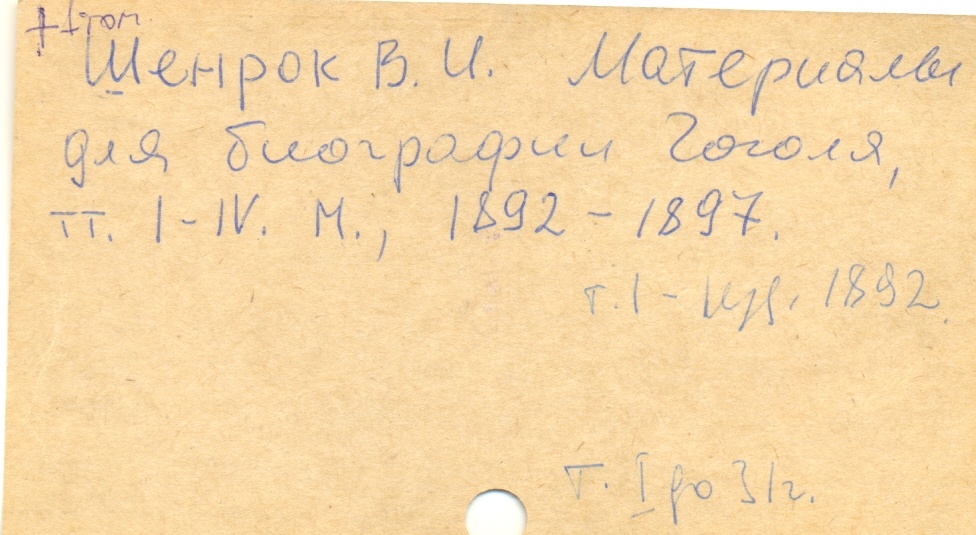 + I том
Шенрок В. И. Материалы
для биографии Гоголя,
тт. I-IV. М., 1892-1897.
т. I - 1892.
Т. I до 31 г.